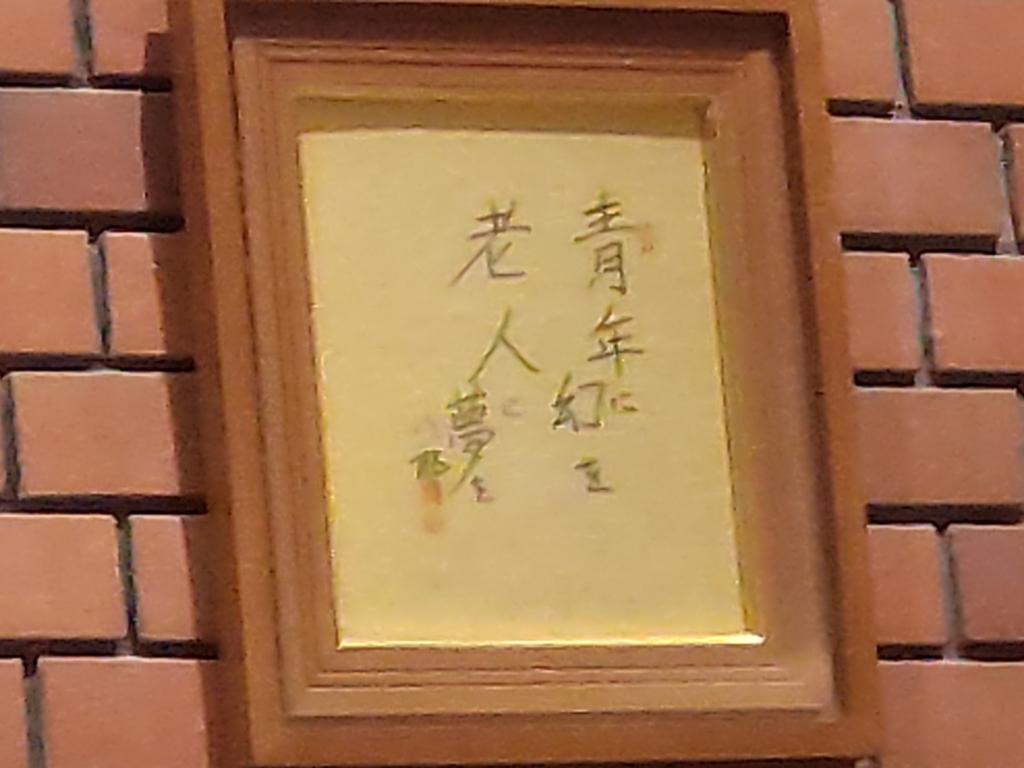 青年に幻を
老人に夢を